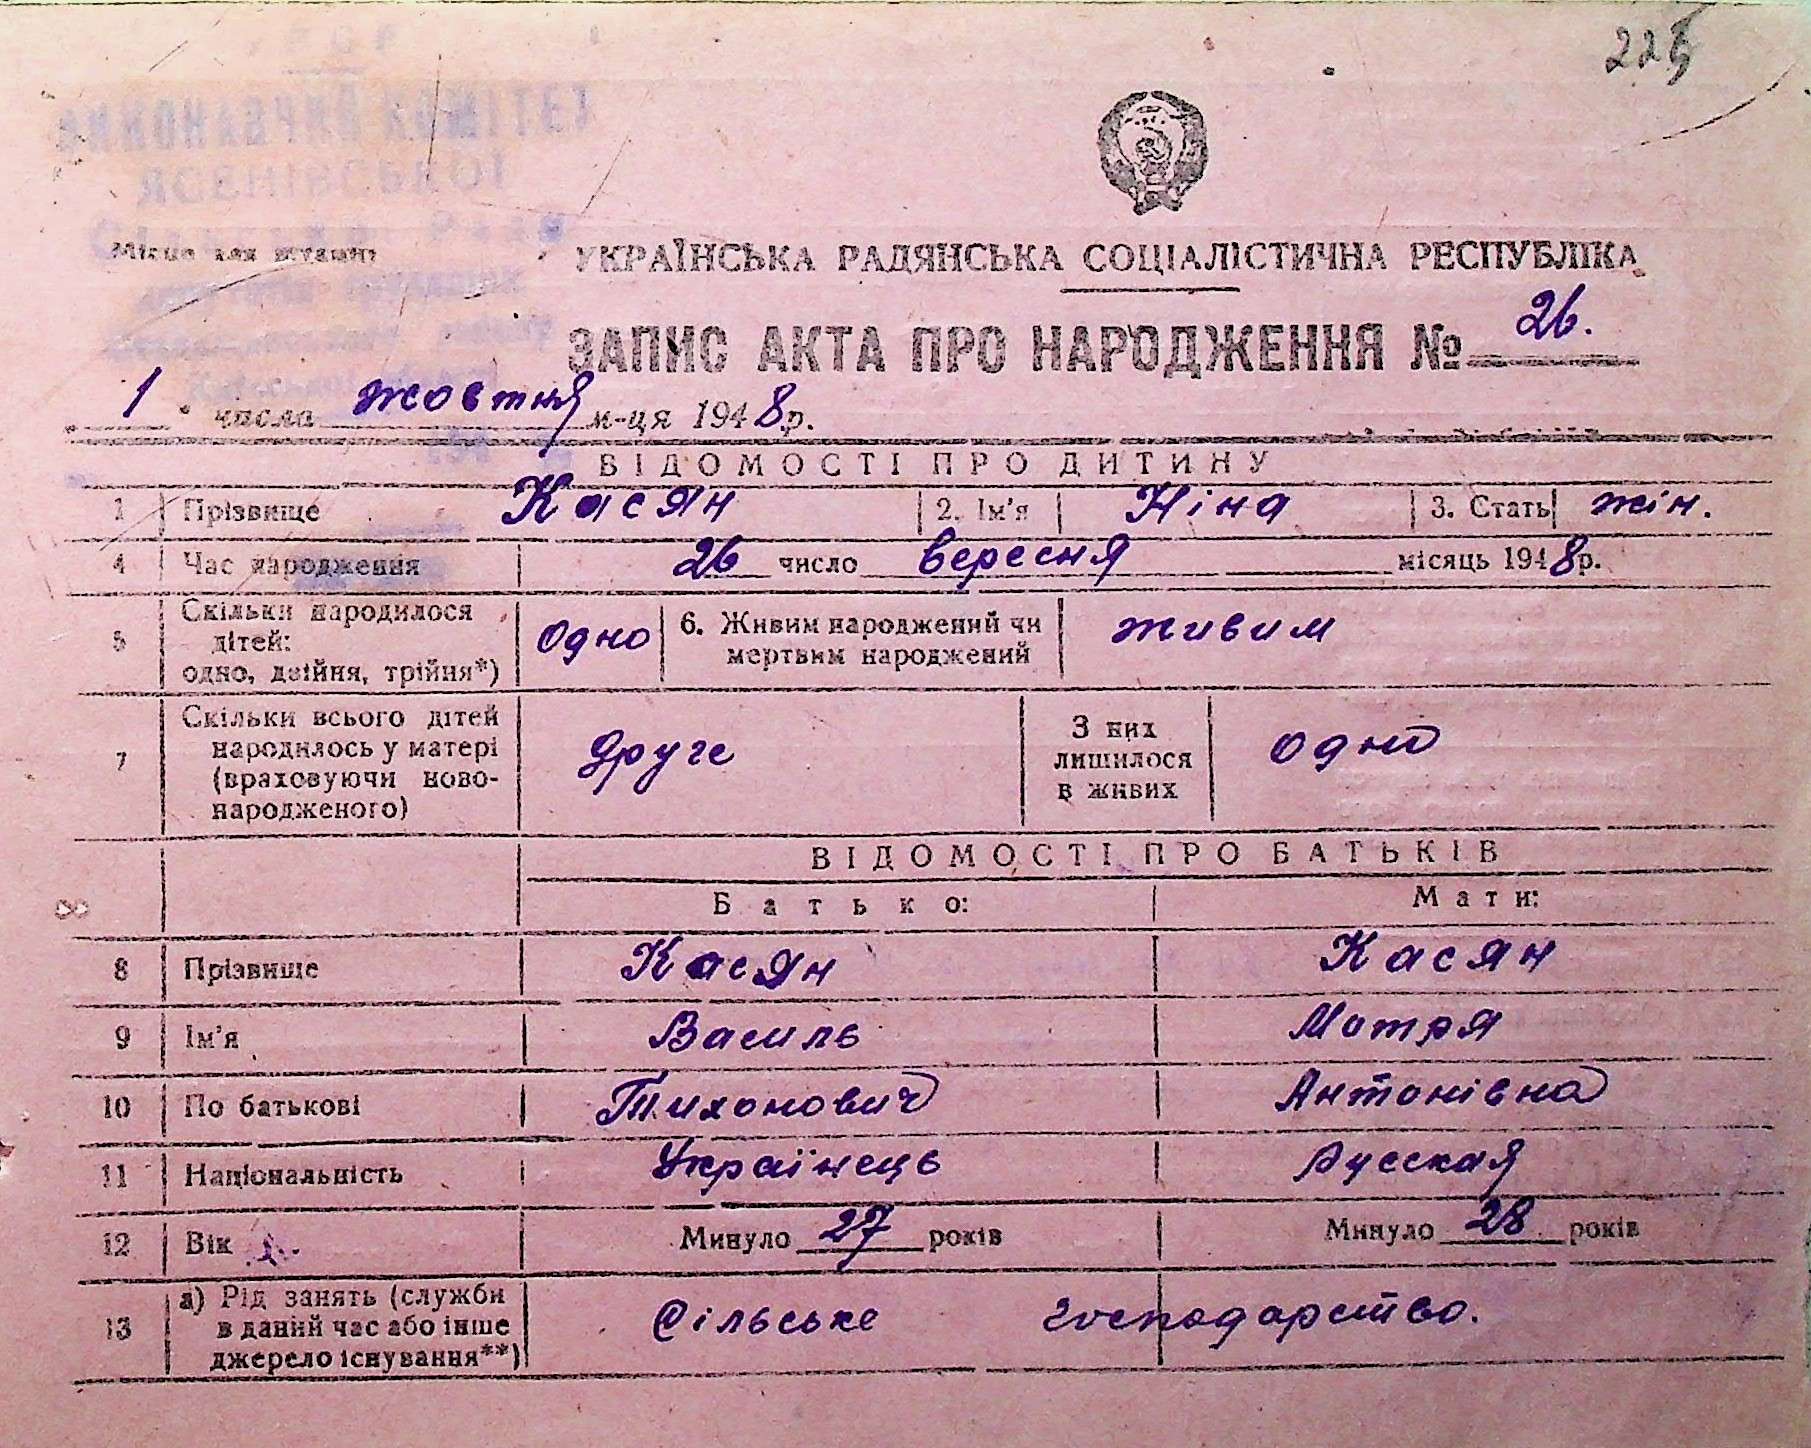 225
ВИКОНАВЧИЙ КОМІТЕТ
ЯСЕНІВСЬКОЇ
Місце для штампу
УКРАЇНСЬКА РАДЯНСЬКА СОЦІАЛІСТИЧНА РЕСПУБЛІКА
ЗАПИС АКТА ПРО НАРОДЖЕННЯ № 26.
„ 1 " число жовтня м-ця 1948 р.
ВІДОМОСТІ ПРО ДИТИНУ
1 Прізвище Касян 2. Ім'я Ніна 3. Стать жін.
4 Час народження 26 число вересня місяць 1948 р.
5 Скільки народилося дітей: одно, двійня, трійня*) одно 6. Живим народжений чи мертвим народжений живим
7 Скільки всього дітей народилось у матері (враховуючи новонародженого) друге З них лишилося в живих одно
ВІДОМОСТІ ПРО БАТЬКІВ
Батько: Мати:
8 Прізвище Касян Касян
9 Ім'я Василь Мотря
10 По батькові Тихонович Антонівна
11 Національність Українець Русская
12 Вік Минуло 27 років Минуло 28 років
13 а) Рід занять (служби в даний час або інше джерело існування**) Сільське господарство.